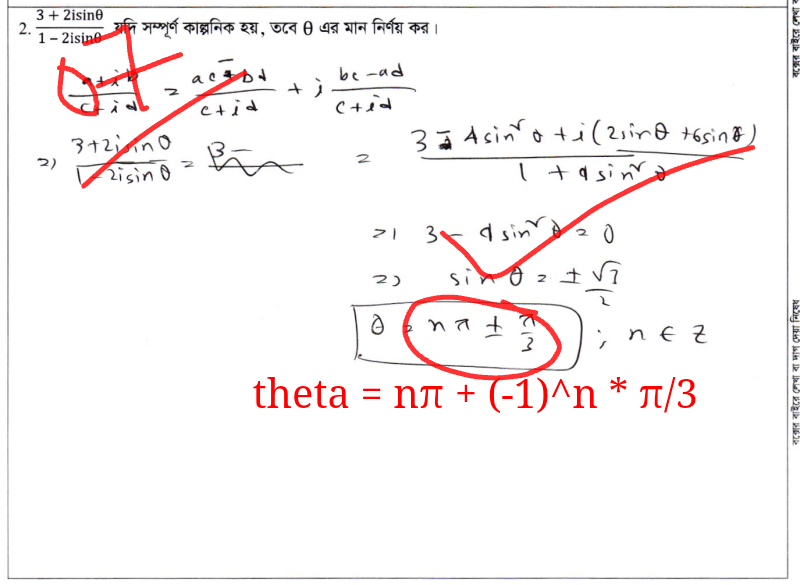 2. (3 + 2isinθ)/(1 − 2isinθ) যদি সম্পূর্ণ কাল্পনিক হয়, তবে θ এর মান নির্ণয় কর।
07
(a+ib)/(c+id) = (ac-bd)/(c+id) + i (bc-ad)/(c+id)
=> (3+2isinθ)/(1-2isinθ) = = (3 - 4sin²θ + i(2sinθ + 6sinθ))/(1 + 4sin²θ)
=> 3 - 4sin²θ = 0
=> sinθ = ± √3/2
θ = nπ ± π/3 ; n ∈ Z
theta = nπ + (-1)^n * π/3
বক্সের বাইরে লেখা বা দাগ দেয়া নিষেধ